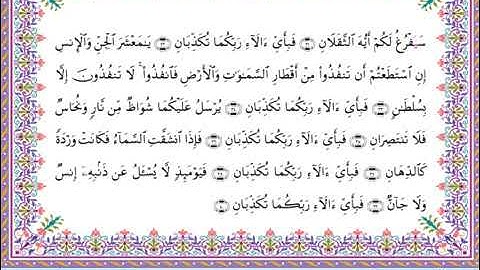 سَنَفْرُغُ لَكُمْ أَيُّهَ ٱلثَّقَلَانِ فَبِأَيِّ ءَالَآءِ رَبِّكُمَا تُكَذِّبَانِ يَٰمَعْشَرَ ٱلْجِنِّ وَٱلْإِنسِ
إِنِ ٱسْتَطَعْتُمْ أَن تَنفُذُوا۟ مِنْ أَقْطَارِ ٱلسَّمَٰوَٰتِ وَٱلْأَرْضِ فَٱنفُذُوا۟ ۚ لَا تَنفُذُونَ إِلَّا
بِسُلْطَٰنٍ فَبِأَيِّ ءَالَآءِ رَبِّكُمَا تُكَذِّبَانِ يُرْسَلُ عَلَيْكُمَا شُوَاظٌ مِّن نَّارٍ وَنُحَاسٌ
فَلَا تَنتَصِرَانِ فَبِأَيِّ ءَالَآءِ رَبِّكُمَا تُكَذِّبَانِ فَإِذَا ٱنشَقَّتِ ٱلسَّمَآءُ فَكَانَتْ وَرْدَةً
كَٱلدِّهَانِ فَبِأَيِّ ءَالَآءِ رَبِّكُمَا تُكَذِّبَانِ فَيَوْمَئِذٍ لَّا يُسْـَٔلُ عَن ذَنۢبِهِۦٓ إِنسٌ
وَلَا جَآنٌّ فَبِأَيِّ ءَالَآءِ رَبِّكُمَا تُكَذِّبَانِ